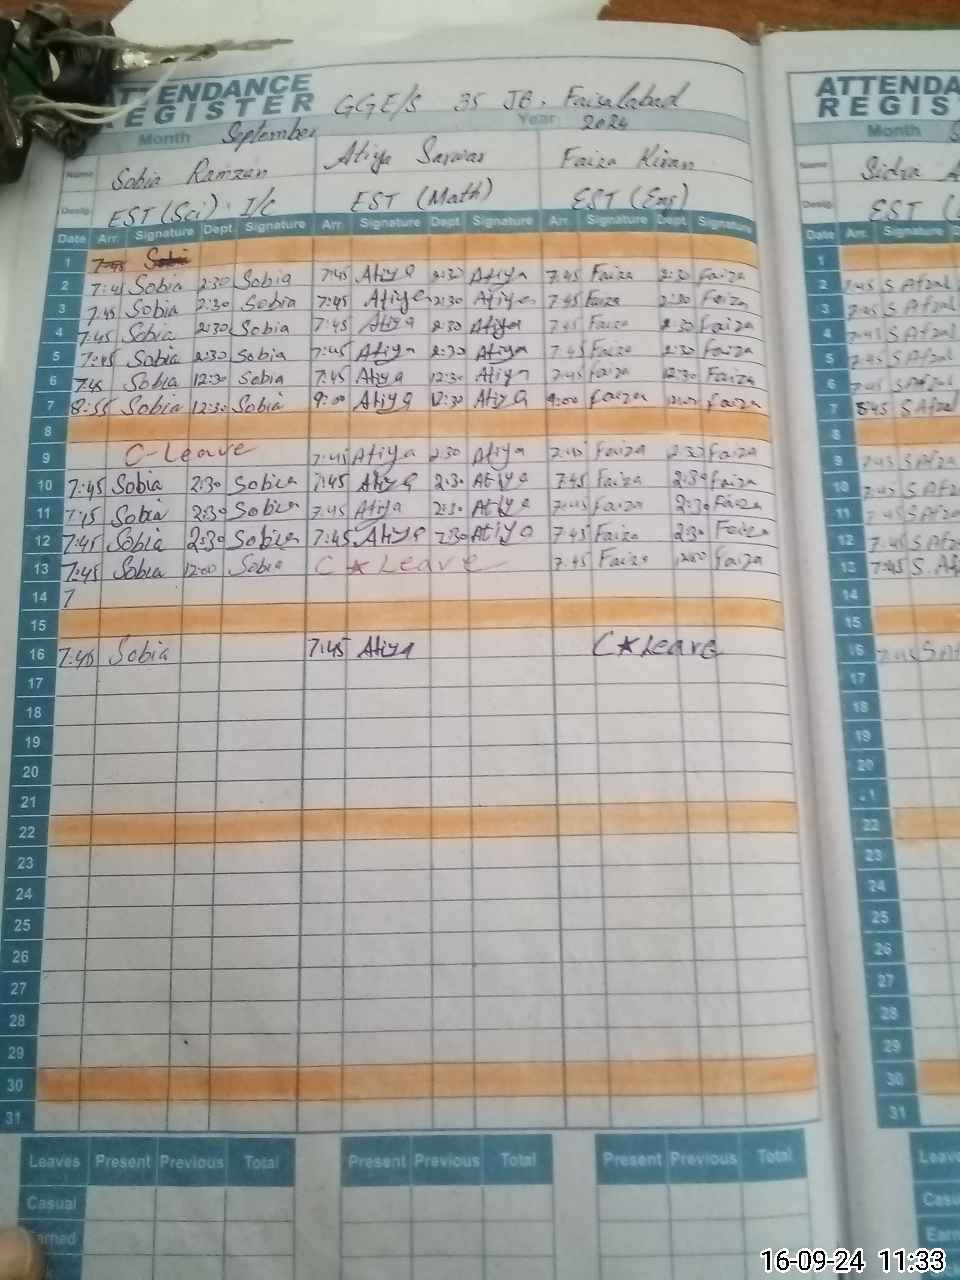 ATTENDANCE REGISTER GGE/S 35 JB, Faisalabad
Month September Year 2024
Name Sobia Ramzan Atiya Sarwar Faiza Kiran
Desig. EST (Sci) I/C EST (Math) EST (Eng)
Date Arr. Signature Dept. Signature Arr. Signature Dept. Signature Arr. Signature Dept. Signature
1 7:45 Sobia
2 7:41 Sobia 2:30 Sobia 7:45 Atiya 2:30 Atiya 7:45 Faiza 2:30 Faiza
3 7:45 Sobia 2:30 Sobia 7:45 Atiya 2:30 Atiya 7:45 Faiza 2:30 Faiza
4 7:45 Sobia 2:30 Sobia 7:45 Atiya 2:30 Atiya 7:45 Faiza 2:30 Faiza
5 7:45 Sobia 2:30 Sobia 7:45 Atiya 2:30 Atiya 7:45 Faiza 2:30 Faiza
6 7:45 Sobia 12:30 Sobia 7:45 Atiya 12:30 Atiya 7:45 Faiza 12:30 Faiza
7 8:55 Sobia 12:30 Sobia 9:00 Atiya 12:30 Atiya 9:00 Faiza Faiza
8
9 C-Leave 7:45 Atiya 2:30 Atiya 7:45 Faiza 2:30 Faiza
10 7:45 Sobia 2:30 Sobia 7:45 Atiya 2:30 Atiya 7:45 Faiza 2:30 Faiza
11 7:45 Sobia 2:30 Sobia 7:45 Atiya 2:30 Atiya 7:45 Faiza 2:30 Faiza
12 7:45 Sobia 2:30 Sobia 7:45 Atiya 2:30 Atiya 7:45 Faiza 2:30 Faiza
13 7:45 Sobia 12:00 Sobia C★Leave 7:45 Faiza 12:00 Faiza
14 7
15
16 7:45 Sobia 7:45 Atiya C★Leave
17
18
19
20
21
22
23
24
25
26
27
28
29
30
31
Leaves Present Previous Total Present Previous Total Present Previous Total
Casual
Earned
ATTENDA
REGIS
Month S
Name Sidra A
Desig. EST (
Date Arr. Signature D
1
2 7:45 S Afzal
3 7:45 S Afzal
4 7:45 S Afzal
5 7:45 S Afzal
6 7:45 S Afzal
7 8:45 S Afzal
8
9 7:45 S Afza
10 7:45 S Afz
11 7:45 S Afz
12 7:45 S Afz
13 7:45 S. Af
14
15
16 7:45 S Af
17
18
19
20
21
22
23
24
25
26
27
28
29
30
31
Leav
Casu
Earn
16-09-24 11:33